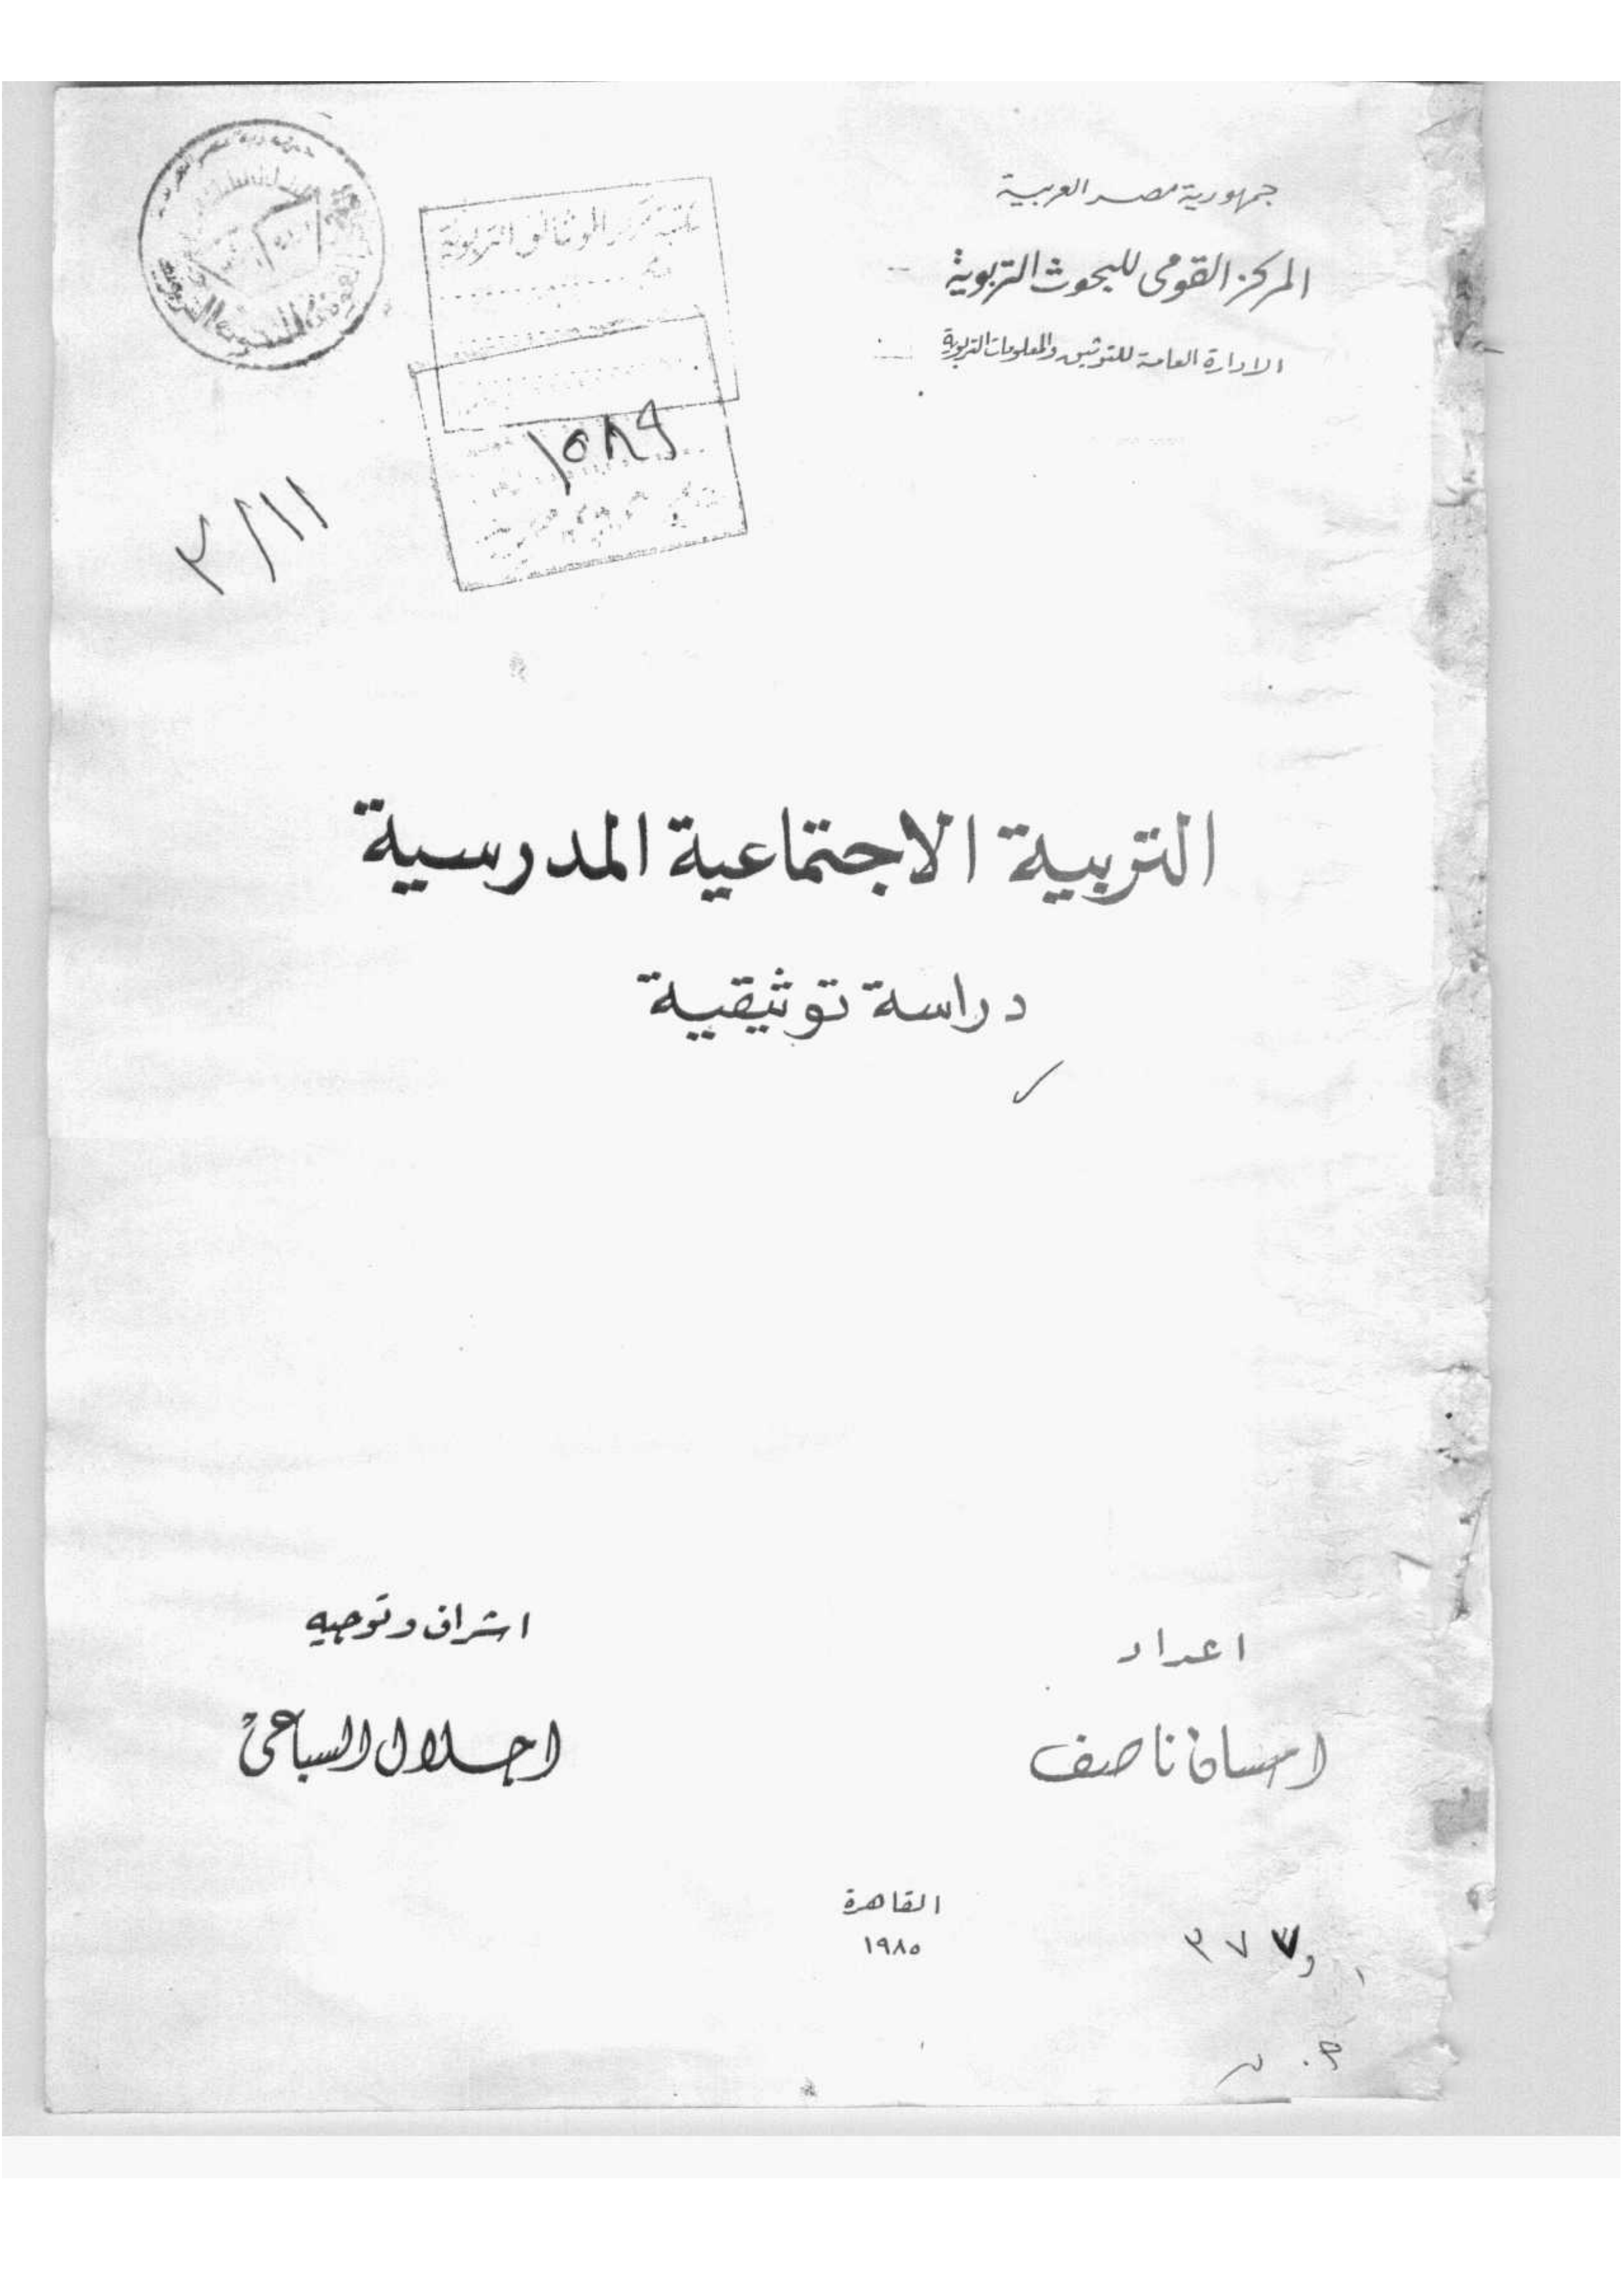 جمهورية مصر العربية
المركز القومى للبحوث التربوية
الادارة العامة للتوثيق والمعلومات التربوية
١٥٨٩
٢/١١
التربية الاجتماعية المدرسية
دراسة توثيقية
اعداد
احسان ناصف
اشراف وتوجيه
اجلال السباعى
القاهرة
١٩٨٥